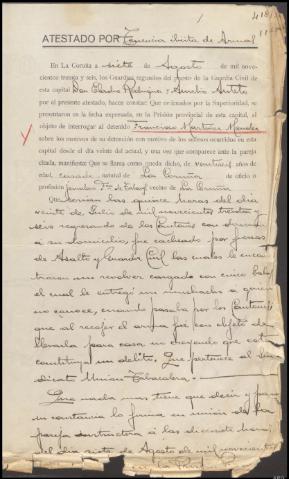 ATESTADO POR Tenencia ilícita de Armas
En La Coruña a siete de Agosto de mil nove-
cientos treinta y seis, los Guardias segundos del puesto de la Guardia Civil de
esta capital Don Eladio Rodríguez y Aurelio
por el presente atestado, hacen constar: Que ordenados por la Superioridad, se
presentaron en la fecha expresada, en la Prisión provincial de esta capital, al
objeto de interrogar al detenido Francisco Martínez
sobre los motivos de su detención con motivo de los sucesos ocurridos en esta
capital desde el día veinte del actual, y una vez que comparece ante la pareja
citada, manifiesta: Que se llama como queda dicho, de años de
edad, casado, natural de La Coruña de oficio o
profesión vecino de La Coruña
Que serían las quince horas del día
veinte de Julio de mil novecientos treinta y
seis regresando de los Cantones con dirección
a su domicilio, fue cacheado por fuerzas
de Asalto y Guardia Civil las cuales le encon-
traron un revolver cargado con cinco balas,
el cual le entregó un muchacho a quien
no conoce, cuando pasaba por los Cantones,
que al recojer el arma fué con objeto de
llevarla para casa no creyendo que esto
constituya un delito, Que pertenece al Sin-
dicato Unión Tabacalera,
Que nada mas tiene que decir y para
su constancia lo firma en unión de la
pareja instructora a las diecisiete horas
del día siete de Agosto de mil novecientos